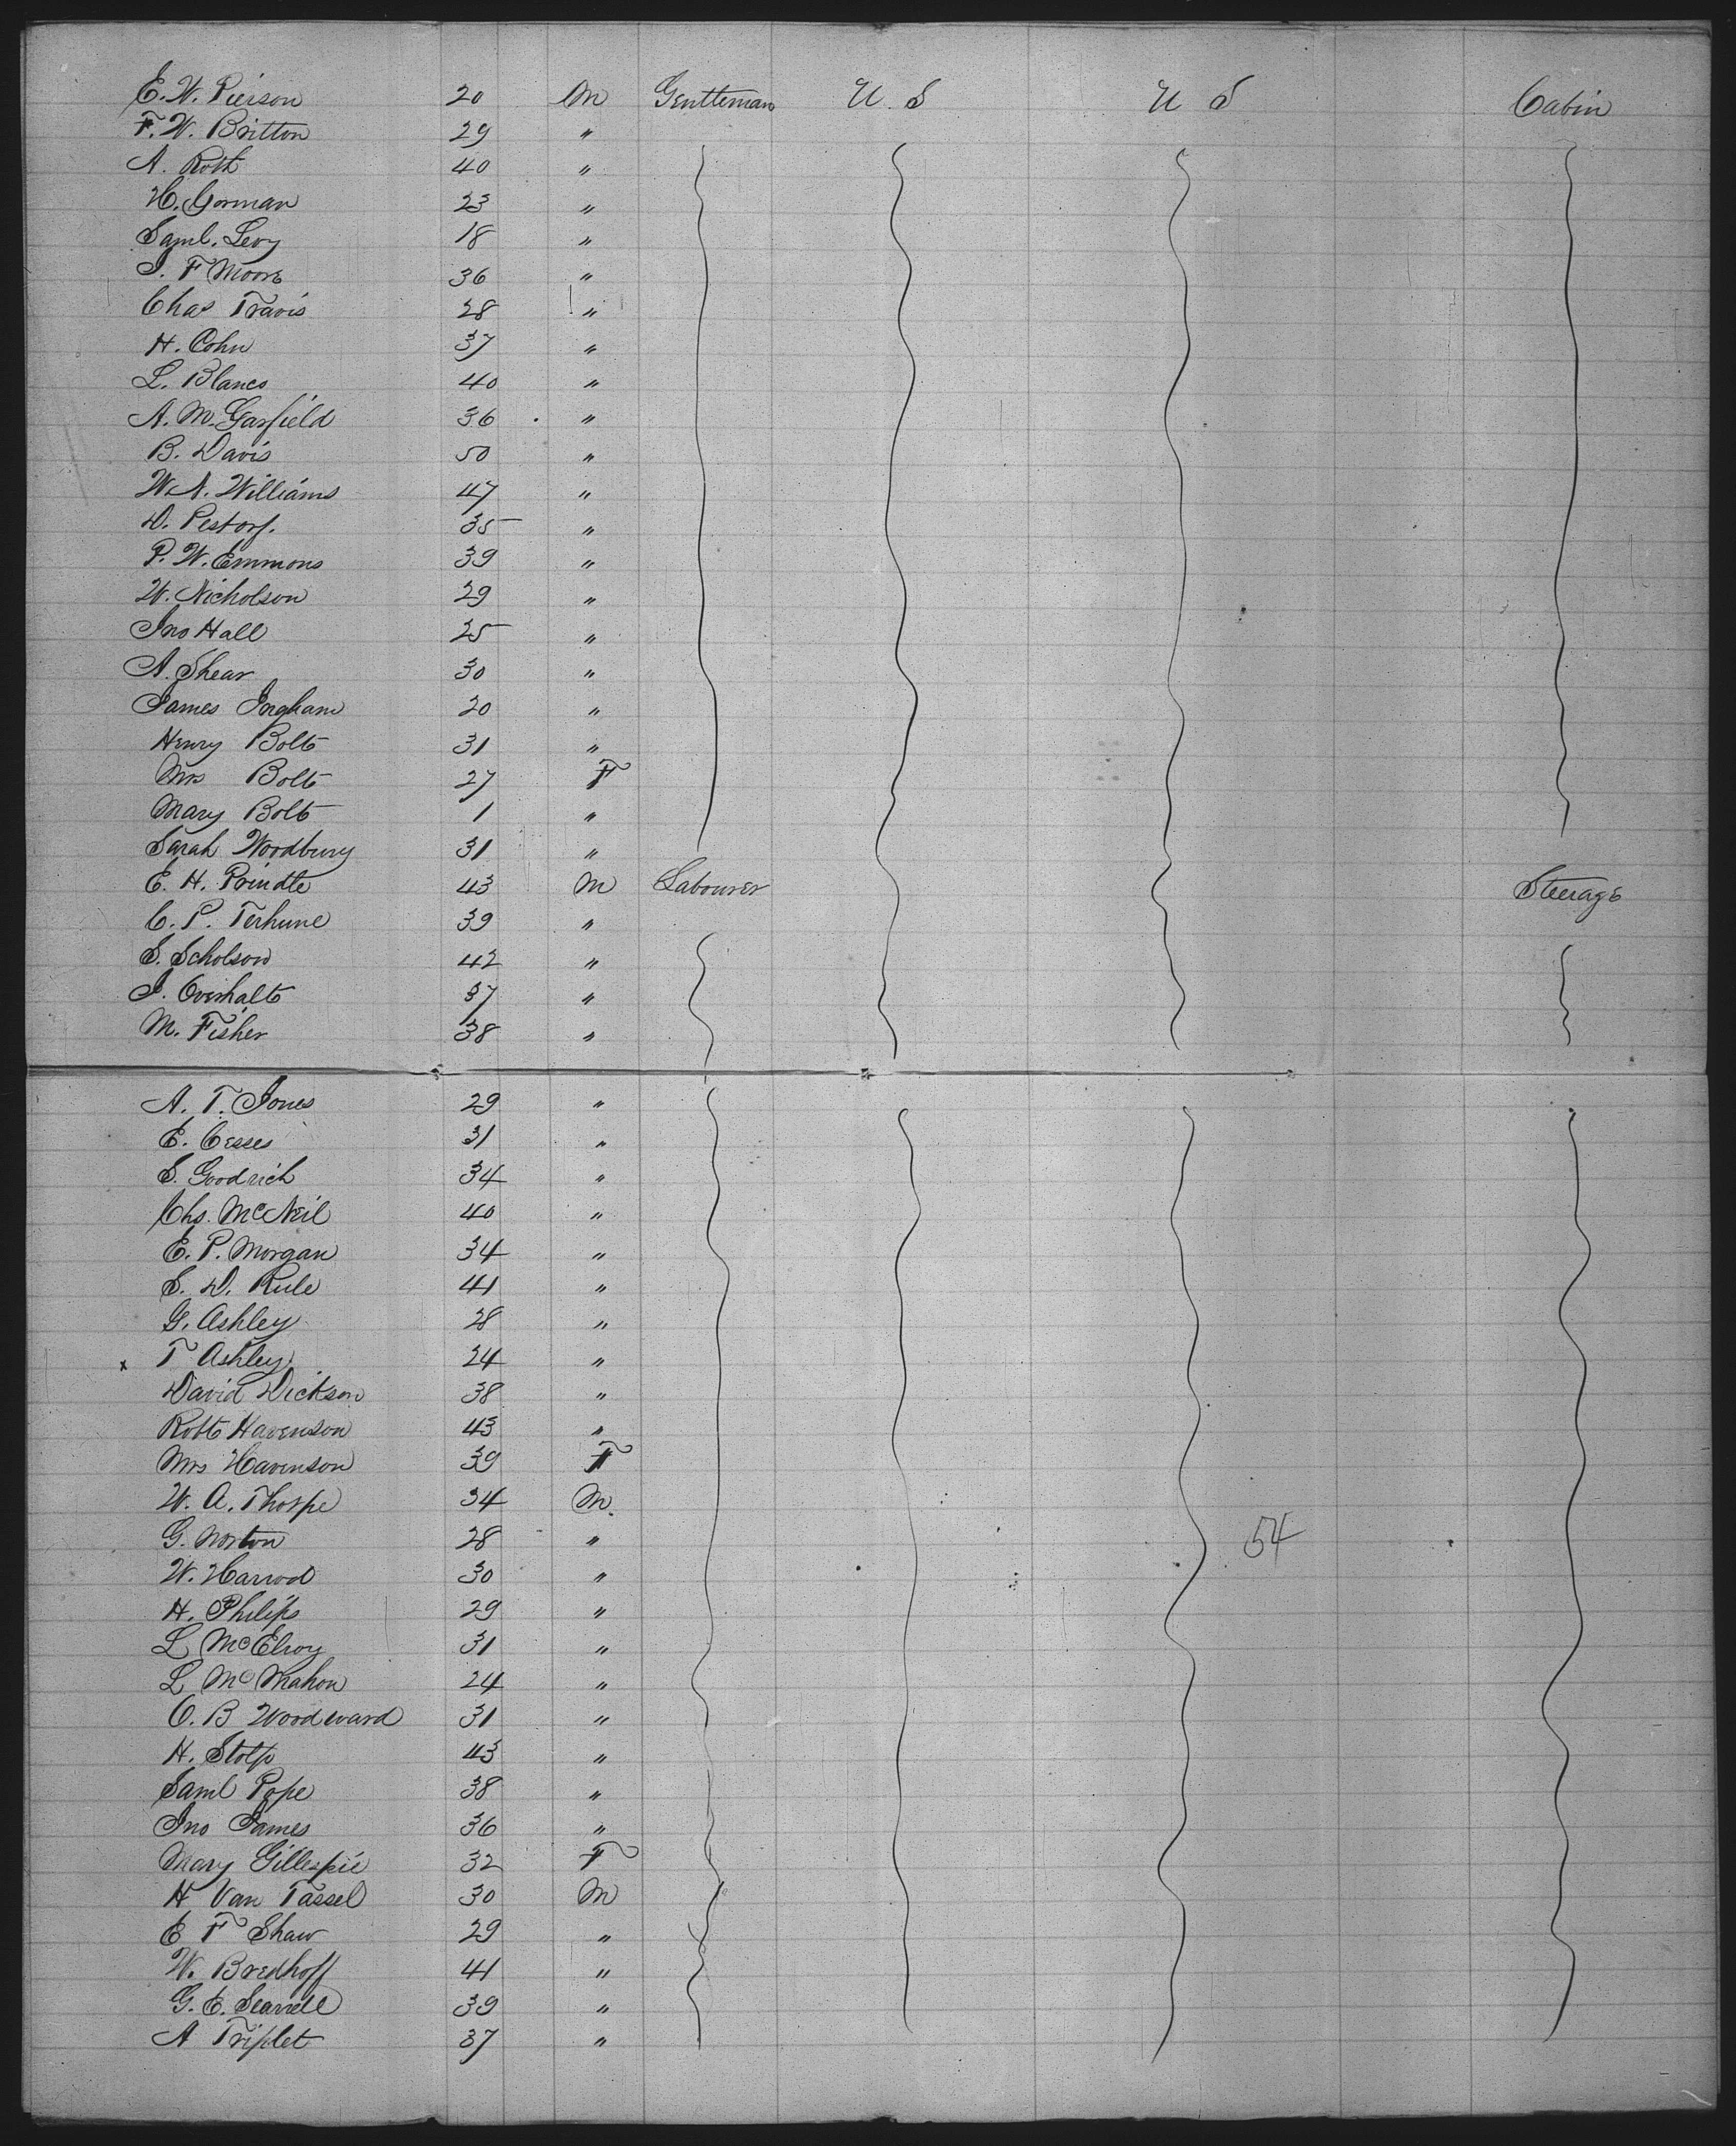 E. W. Pierson 20 M Gentleman U. S U S Cabin
F. W. Britton 29 "
A. Roth 40 "
H. Gorman 23 "
Saml. Levy 18 "
J. F Moore 36 "
Chas Travis 28 "
H. Cohn 37 "
L. Blanco 40 "
A. M. Garfield 36 "
B. Davis 50 "
W. A. Williams 47 "
D. Pestorf. 35 "
P. W. Emmons 39 "
W. Nicholson 29 "
Jno Hall 25 "
A. Shear 30 "
James Ingham 20 "
Henry Bolt 31 "
Mrs Bolt 27 F
Mary Bolt 1 "
Sarah Woodbury 31 "
E. H. Prindle 43 M Labourer Steerage
C. P. Terhune 39 "
S. Scholson 42 "
J. Overhalt 37 "
M. Fisher 38 "
A. T. Jones 29 "
E. Cesses 31 "
S. Goodrich 34 "
Chs. McNeil 40 "
E. P. Morgan 34 "
S. D. Rule 41 "
G. Ashley 28 "
x T Ashley 24 "
David Dickson 38 "
Robt Havenson 43 "
Mrs Havenson 39 F
W. A. Thorpe 34 M
G. Norton 28 " 54
W. Harrod 30 "
H. Philips 29 "
L McElroy 31 "
L McMahon 24 "
O. B Woodward 31 "
H. Stolp 43 "
Saml Pope 38 "
Jno James 36 "
Mary Gillespie 32 F
H Van Tassel 30 M
E F Shaw 29 "
W. Bredhoff 41 "
G. E. 39 "
A Triplet 37 "